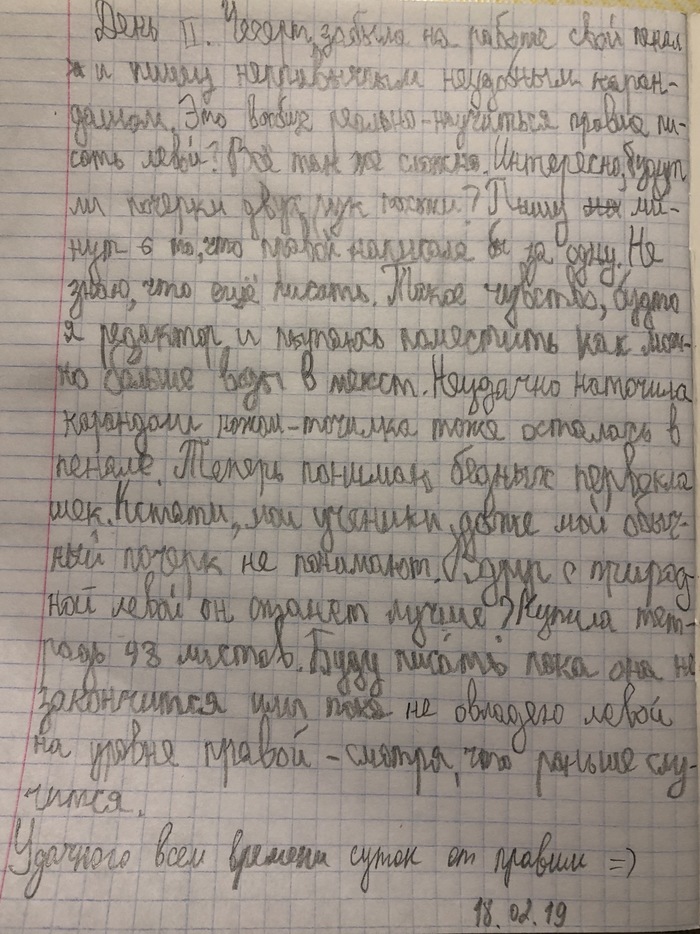 День II. Чёёрт, забыла на работе свой пенал
и пишу непривычным неудобным каран-
дашом. Это вообще реально-научиться правше пи-
сать левой? Всё так же сложно. Интересно, будут
ли почерки двух рук похожи? Пишу ми-
нут 6 то, что правой написала бы за одну. Не
знаю, что ещё писать. Такое чувство, будто
я редактор и пытаюсь поместить как мож-
но больше воды в текст. Неудачно наточила
карандаш ножом-точилка тоже осталась в
пенале. Теперь понимаю бедных первокла
шек. Кстати, мои ученики даже мой обыч-
ный почерк не понимают. Вдруг с
ной левой он станет лучше? Купила тет-
радь 48 листов. Буду писать пока она не
закончится или пока не овладею левой
на уровне правой-смотря, что раньше слу-
чится.
Удачного всем времени суток от правши =)
18.02.19